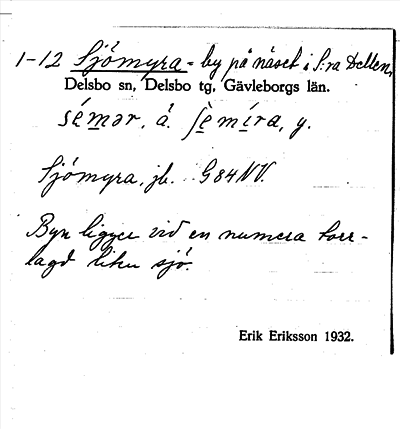 1-12 Sjömyra - by på näset i S:ra Dellen,
Delsbo sn, Delsbo tg, Gävleborgs län.
sémər, ä. ʃèmíra, y.
Sjömyra, jb. G84NV.
Byn ligger vid en numera torr-
lagd liten sjö.
Erik Eriksson 1932.